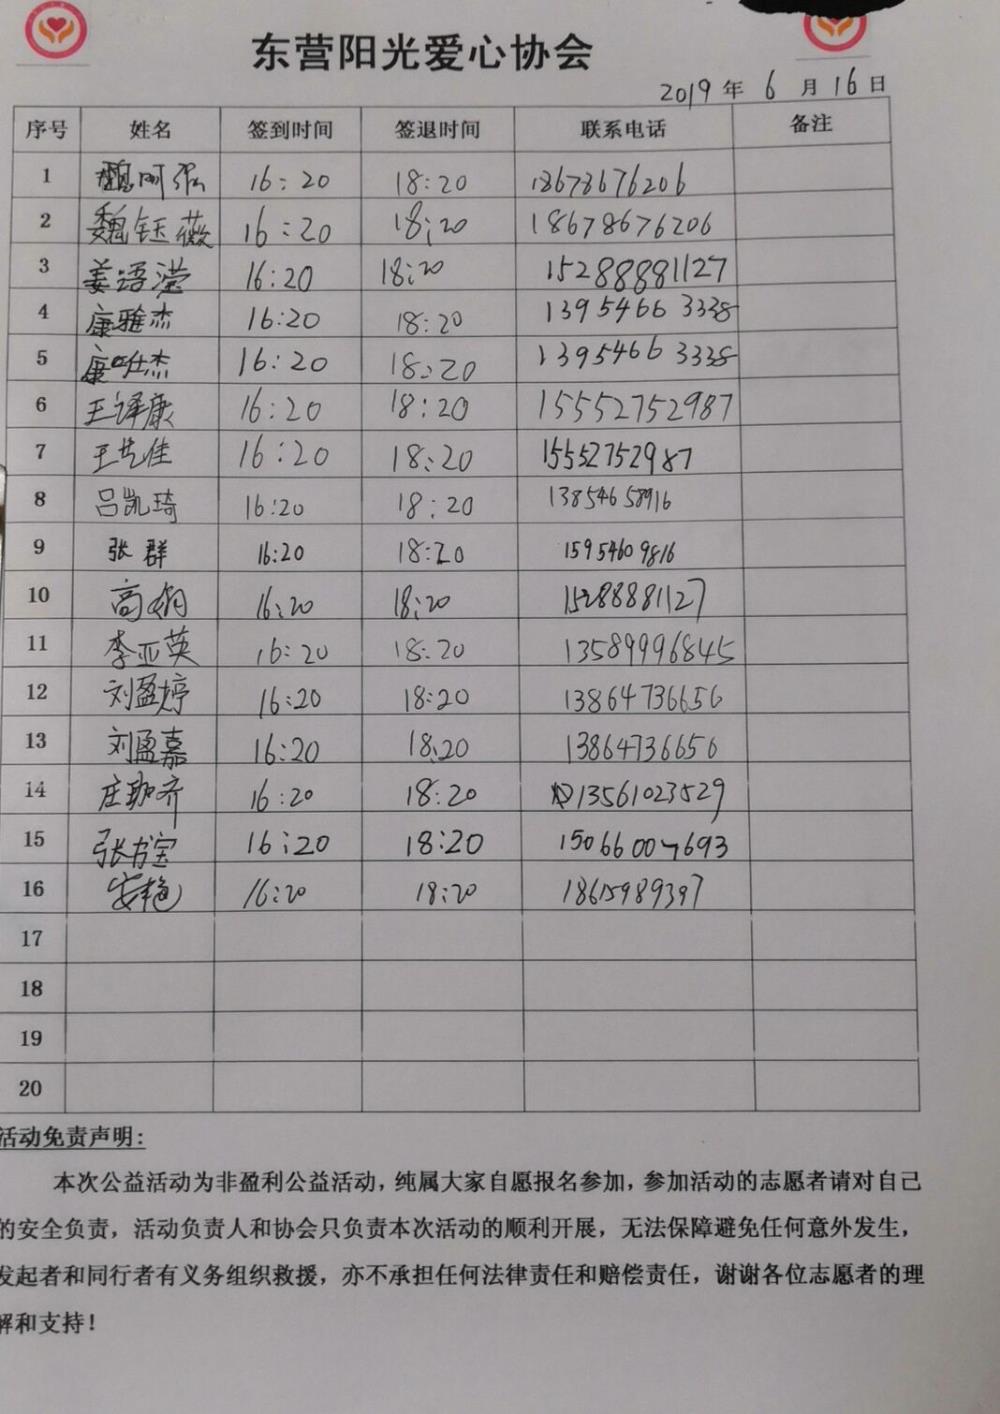 东营阳光爱心协会
2019年 6月16日
序号 姓名 签到时间 签退时间 联系电话 备注
1 16:20 18:20 18678676206
2 魏钰薇 16:20 18:20 18678676206
3 姜语滢 16:20 18:20 15288881127
4 康雅杰 16:20 18:20 13954663338
5 16:20 18:20 13954663338
6 王译康 16:20 18:20 15552752987
7 王艺佳 16:20 18:20 15552752987
8 吕凯琦 16:20 18:20 13854658916
9 张群 16:20 18:20 15954609816
10 高娟 16:20 18:20 15288881127
11 李亚英 16:20 18:20 13589996845
12 刘盈婷 16:20 18:20 13864736656
13 刘盈嘉 16:20 18:20 13864736656
14 16:20 18:20 13561023529
15 张书宝 16:20 18:20 15066007693
16 安艳 16:20 18:20 18615989397
17
18
19
20
活动免责声明:
本次公益活动为非盈利公益活动，纯属大家自愿报名参加，参加活动的志愿者请对自己
的安全负责，活动负责人和协会只负责本次活动的顺利开展，无法保障避免任何意外发生，
发起者和同行者有义务组织救援，亦不承担任何法律责任和赔偿责任，谢谢各位志愿者的理
解和支持！